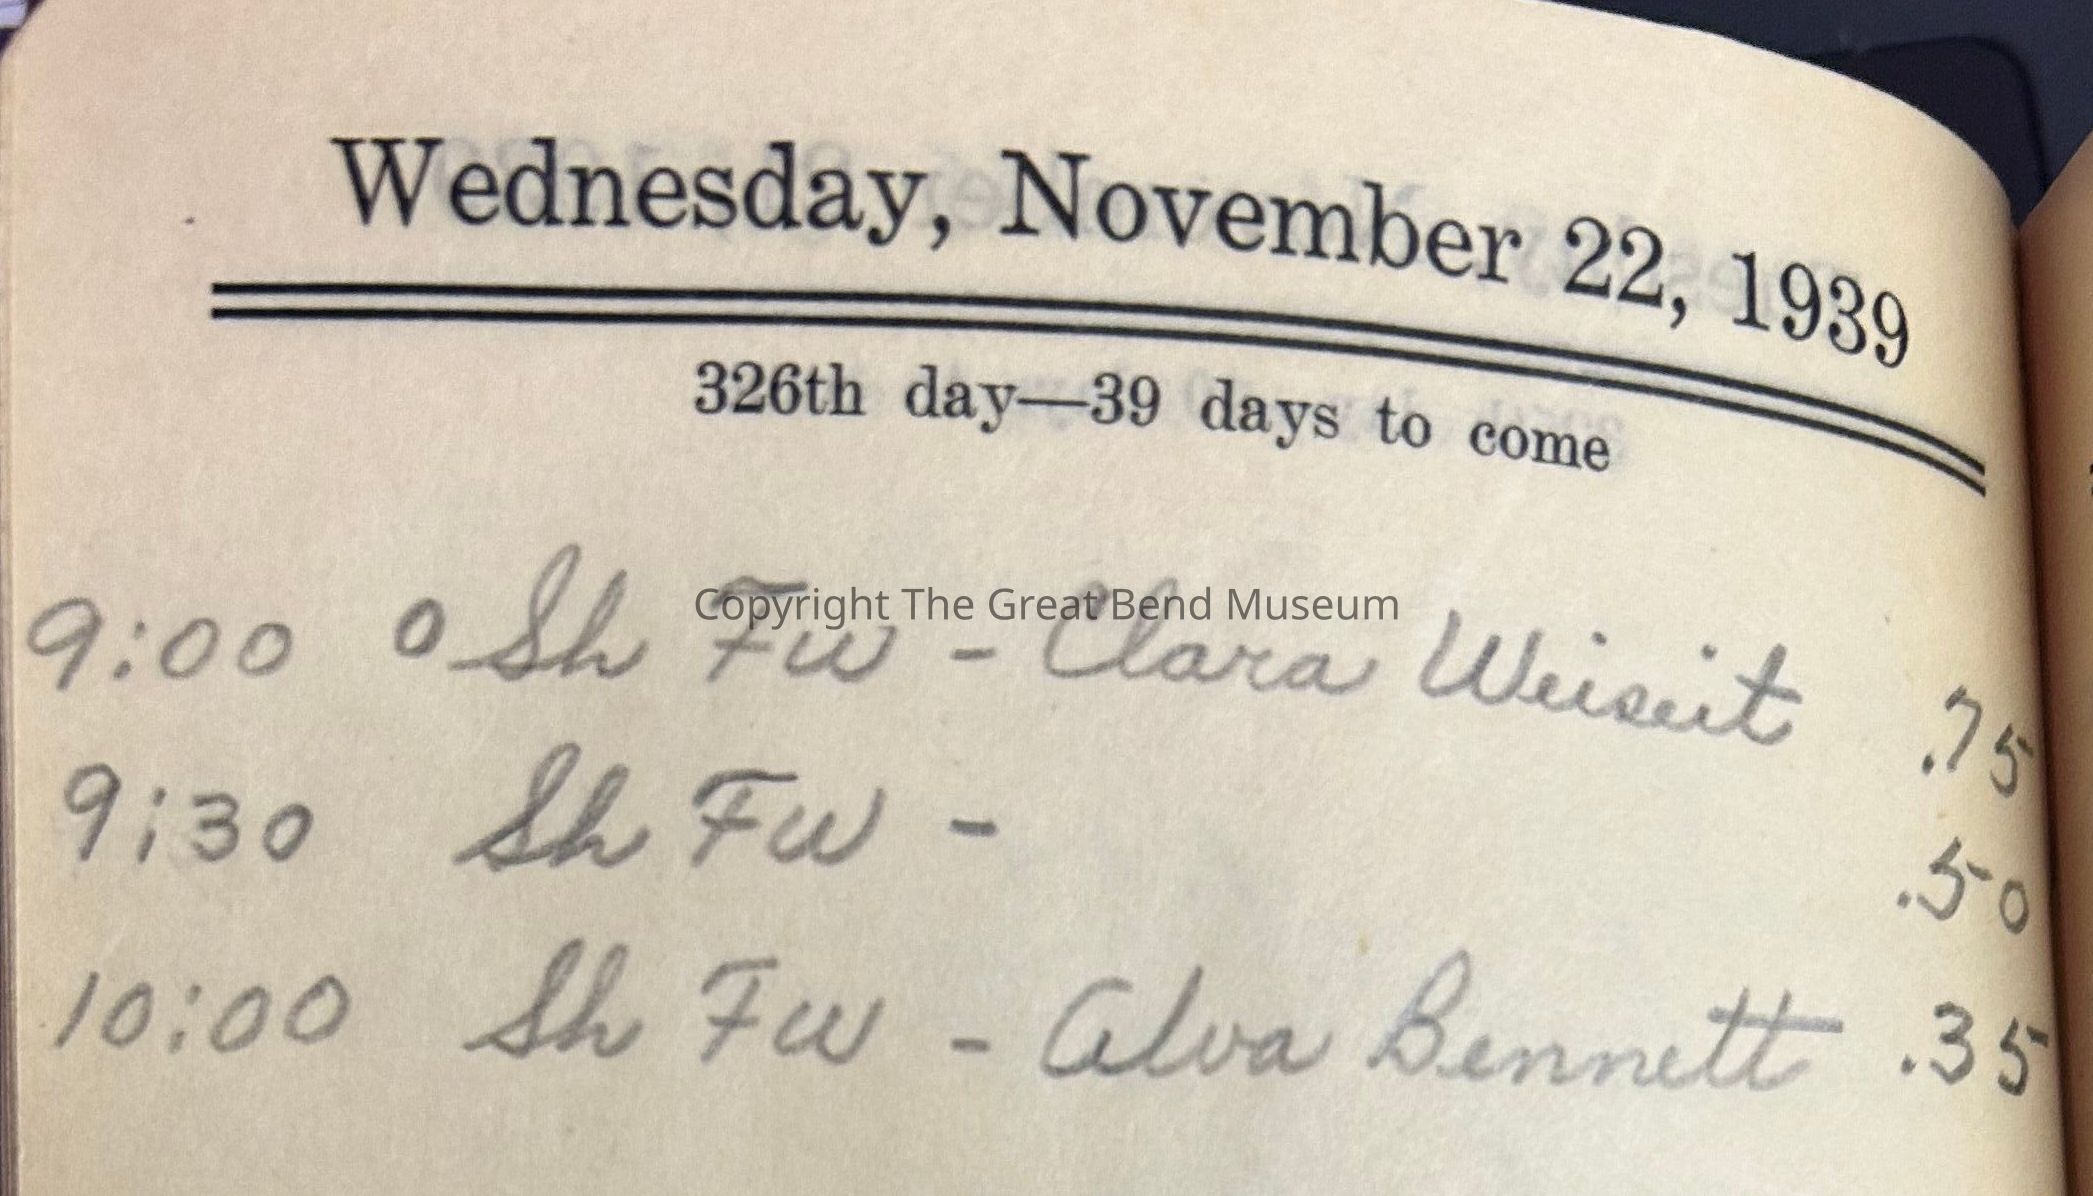 Wednesday, November 22, 1939
326th day—39 days to come
Copyright The Great Bend Museum
9:00 o Sh Fw - Clara Weiseit .75
9:30 Sh Fw - .50
10:00 Sh Fw - Alva Bennett .35